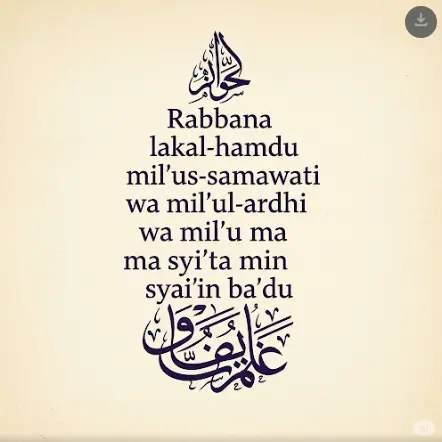 Rabbana
lakal-hamdu
mil’us-samawati
wa mil’ul-ardhi
wa mil’u ma
ma syi’ta min
syai’in ba’du